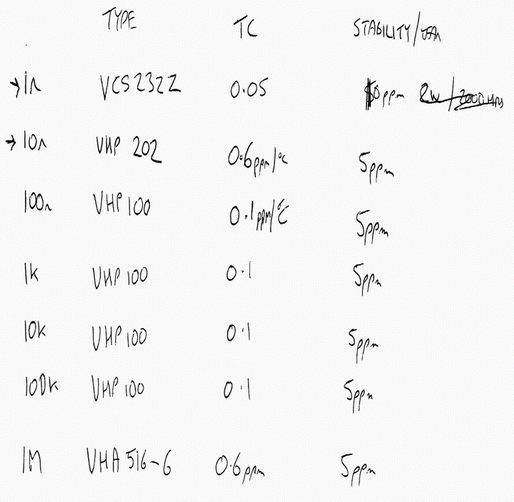 TYPE TC STABILITY/YEAR
→1Ω VCS232Z 0.05 ppm
→10Ω VHP 202 0.6ppm/°C 5ppm
100Ω VHP100 0.1ppm/°C 5ppm
1K VHP100 0.1 5ppm
10K VHP100 0.1 5ppm
100K VHP100 0.1 5ppm
1M VHA516-6 0.6ppm 5ppm